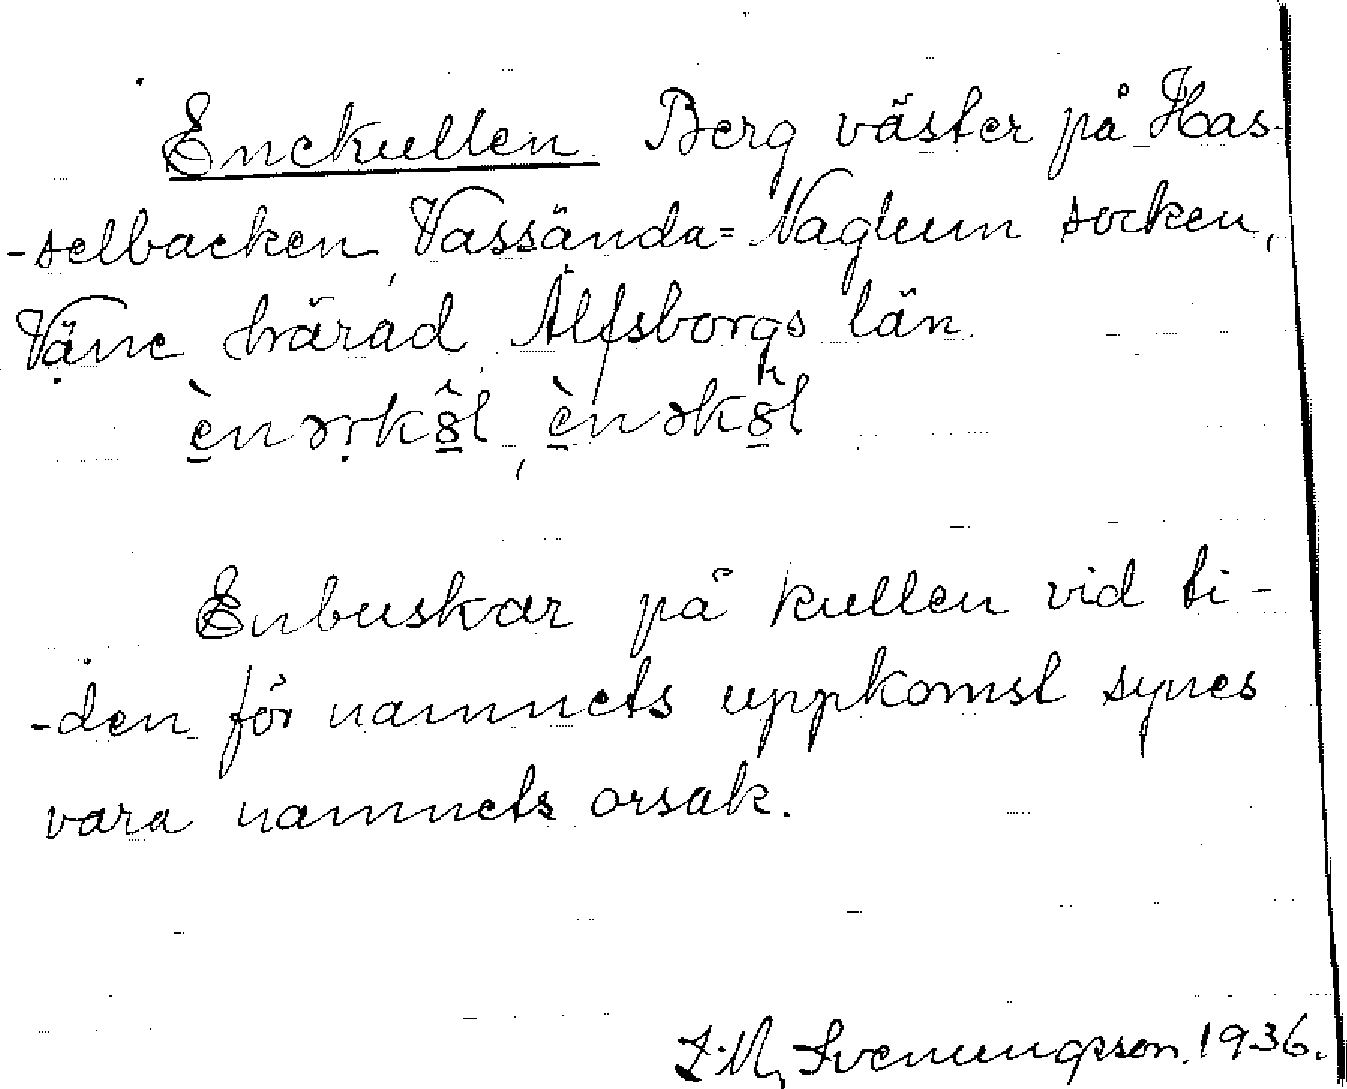 Enekullen Berg väster på Has-
-selbacken, Vassända=Naglum socken,
Väne härad, Älfsborgs län.
Enbuskar på kullen vid ti-
-den för namnets uppkomst synes
vara namnets orsak.
Svenungsson. 1936.